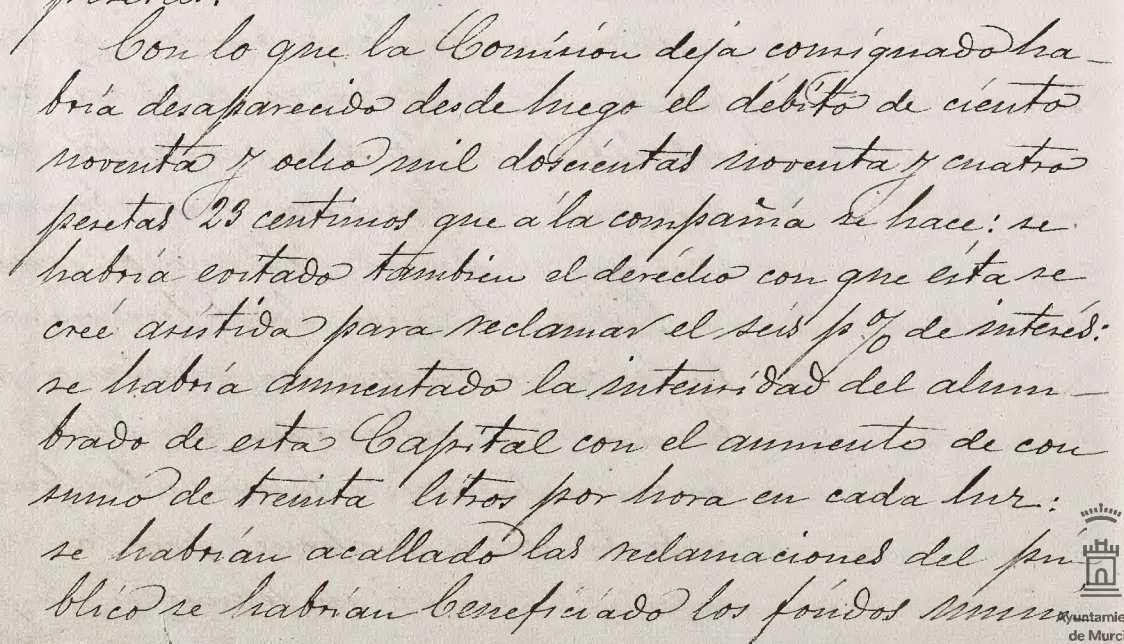 Con lo que la Comisión deja consignado ha-
bría desaparecido desde luego el débito de ciento
noventa y ocho mil doscientas noventa y cuatro
pesetas 23 centimos que a la compañía se hace: se
habría evitado tambien el derécho con que ésta se
creé asistida para reclamar el seis p% de interés:
se habría aumentado la intensidad del alum-
brado de esta Capital con el aumento de con
sumo de treinta litros por hora en cada luz:
se habrían acallado las reclamaciones del pu-
blico se habrían beneficiado los fondos
Ayuntamie
de Murci